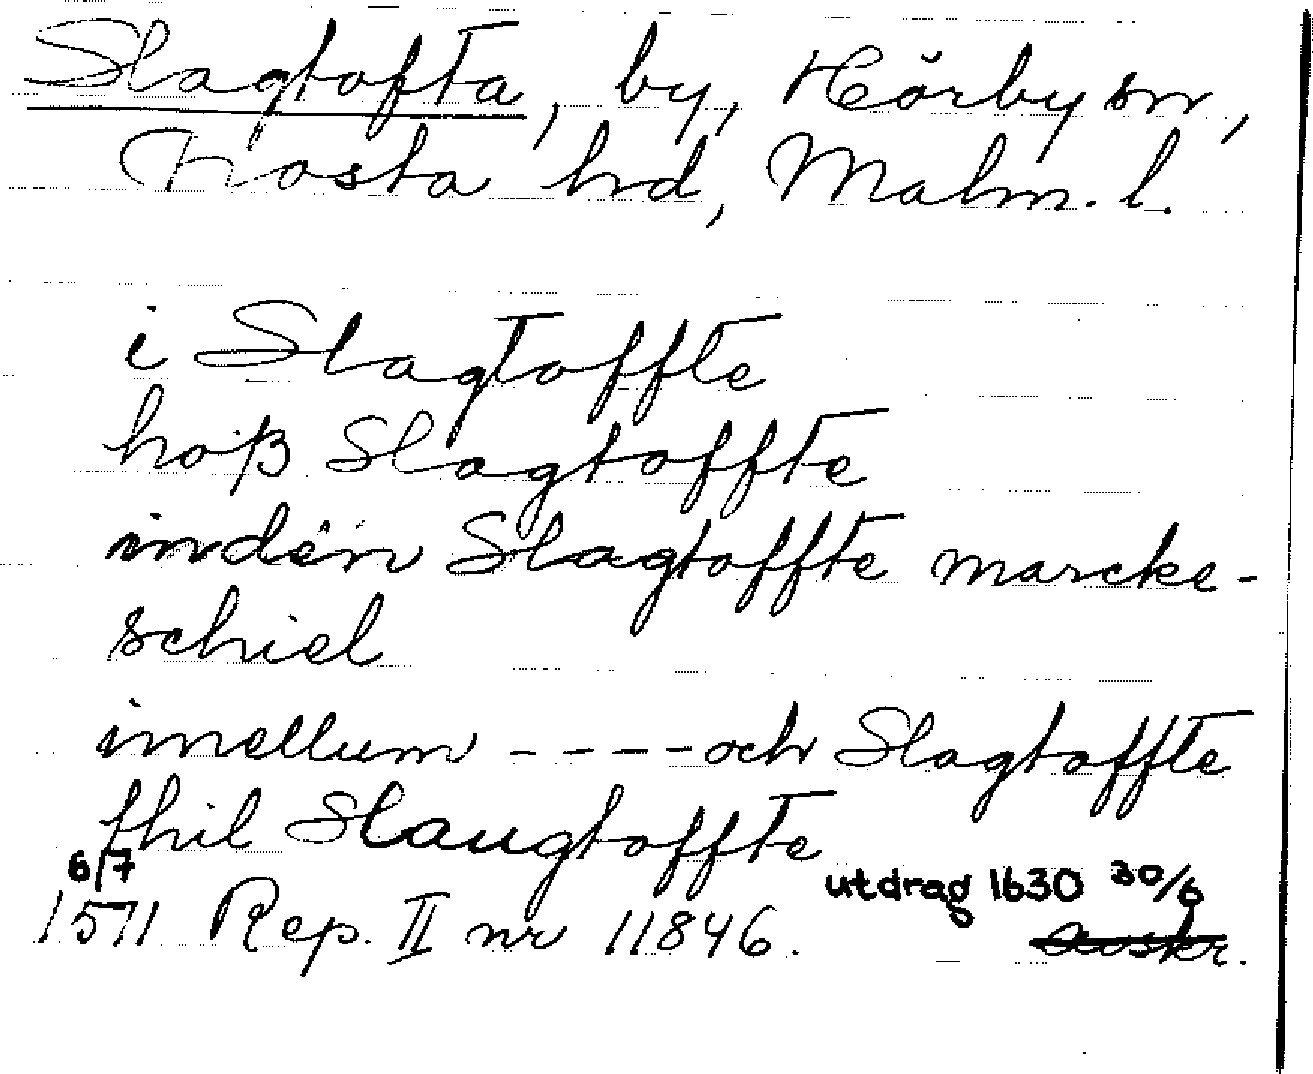 Slagtofta, by, Hörby sn,
Frosta hd, Malm. l.
i Slagtoffte
hoß Slagtoffte
inden Slagtoffte marcke-
schiel
imellum ----och Slagtoffte
thil Slaugtoffte
6/7 utdrag 1630 30/6
1571 Rep. II nr 11846. Avskr.